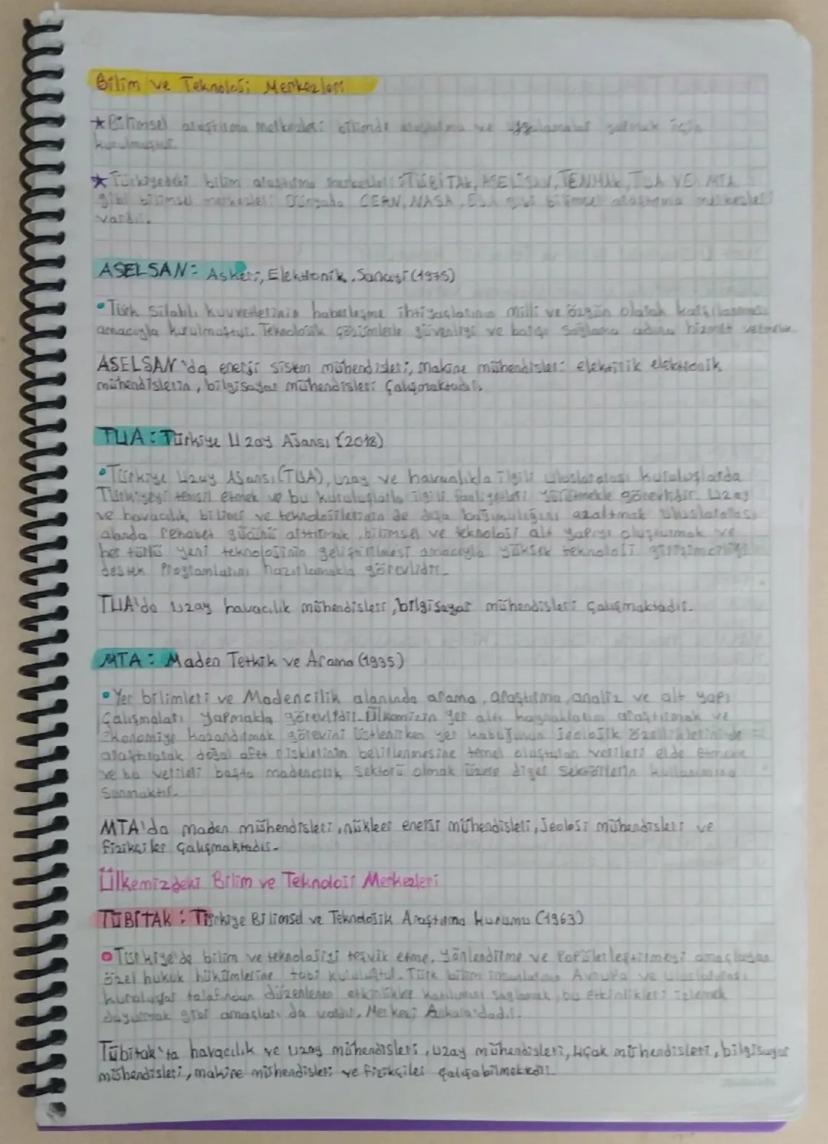 Bilim ve Teknoloji Merkezleri
★ Bilimsel araştırma merkezleri bilimde araştırma ve uygulamalar yapmak için
kurulmuştur.
★ Türkiyedeki bilim araştırma merkezleri: TÜBİTAK, ASELSAN, TENMAK, TUA VE MTA
gibi bilimsel merkezleri Dünyada CERN, NASA, ESA gibi bilimsel araştırma merkezleri
vardır.
ASELSAN: Askeri, Elektronik, Sanayi (1975)
• Türk Silahlı kuvvetlerinin haberleşme ihtiyaçlarının milli ve özgün olarak karşılanması
amacıyla kurulmuştur. Teknolojik çözümlerle güvenliği ve barışı sağlama adına hizmet
ASELSAN'da enerji sistem mühendisleri, makine mühendisleri elektrik elektronik
mühendislerin, bilgisayar mühendisleri çalışmaktadır.
TUA: Türkiye Uzay Ajansı (2018)
• Türkiye Uzay Ajansı (TUA), uzay ve havacılıkla ilgili uluslararası kuruluşlarda
Türkiyeyi temsil etmek ve bu kuruluşlarla ilgili faaliyetleri yürütmekle görevlidir. Uzay
ve havacılık, bilimi ve teknolojilerinin de dışa bağımlılığını azaltmak uluslararası
alanda rekabet gücünü arttırmak, bilimsel ve teknoloji alt yapıyı oluşturmak ve
her türlü yeni teknolojinin geliştirilmesi amacıyla yüksek teknoloji
destek Programlarını hazırlamakla görevlidir.
TUA'da uzay havacılık mühendisleri, bilgisayar mühendisleri çalışmaktadır.
MTA: Maden Tetkik ve Arama (1935)
• Yer bilimleri ve Madencilik alanında arama, araştırma, analiz ve alt yapı
çalışmaları yapmakla görevlidir. Ülkemizin yer altı kaynaklarını araştırmak ve
ekonomiye kazandırmak görevini üstlenirken yer kabuğunun Jeolojik özelliklerini de
araştırarak doğal afet risklerinin belirlenmesine temel oluşturan verileri elde etmekte
ve bu verileri başta madencilik sektörü olmak üzere diğer sektörlerin kullanımına
sunmaktır.
MTA'da maden mühendisleri, nükleer enerji mühendisleri, Jeoloji mühendisleri ve
fizikçiler çalışmaktadır.
Ülkemizdeki Bilim ve Teknoloji Merkezleri
TÜBİTAK: Türkiye Bilimsel ve Teknolojik Araştırma Kurumu (1963)
• Türkiye'de bilim ve teknolojiyi teşvik etme, yönlendirme ve Popülerleştirmeyi amaçlayan
özel hukuk hükümlerine tabi kuruluştur. Türk bilim insanlarının Avrupa ve uluslararası
kuruluşlar tarafından düzenlenen etkinlikler katılımını sağlamak, bu etkinlikleri izlemek
duyurmak gibi amaçları da vardır. Merkezi Ankaradadır.
Tübitak'ta havacılık ve uzay mühendisleri, uzay mühendisleri, uçak mühendisleri, bilgisayar
mühendisleri, makine mühendisleri ve fizikçiler çalışabilmektedir.